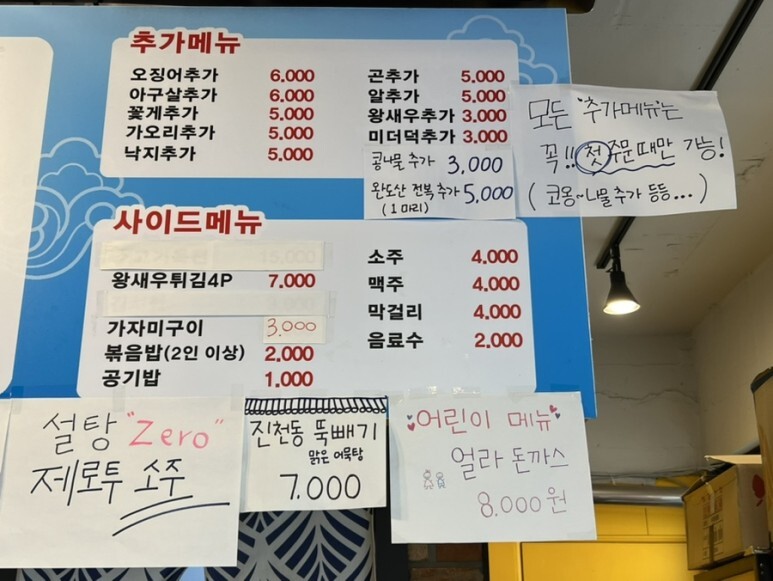 추가메뉴
오징어추가 6.000
아구살추가 6.000
꽃게추가 5.000
가오리추가 5.000
낙지추가 5.000
곤추가 5.000
알추가 5.000
왕새우추가 3.000
미더덕추가 3.000
콩나물 추가 3,000
완도산 전복추가 5,000
(1마리)
모든 "추가메뉴"는
꼭!! 첫주문때만 가능!
(코옹~나물추가 등등...)
사이드메뉴
왕새우튀김4P 7.000
가자미구이 3.000
볶음밥(2인 이상) 2.000
공기밥 1.000
소주 4.000
맥주 4.000
막걸리 4.000
음료수 2.000
설탕 "Zero"
제로투 소주
진천동 뚝빼기
맑은 어묵탕
7.000
어린이 메뉴
얼라 돈까스
8.000원